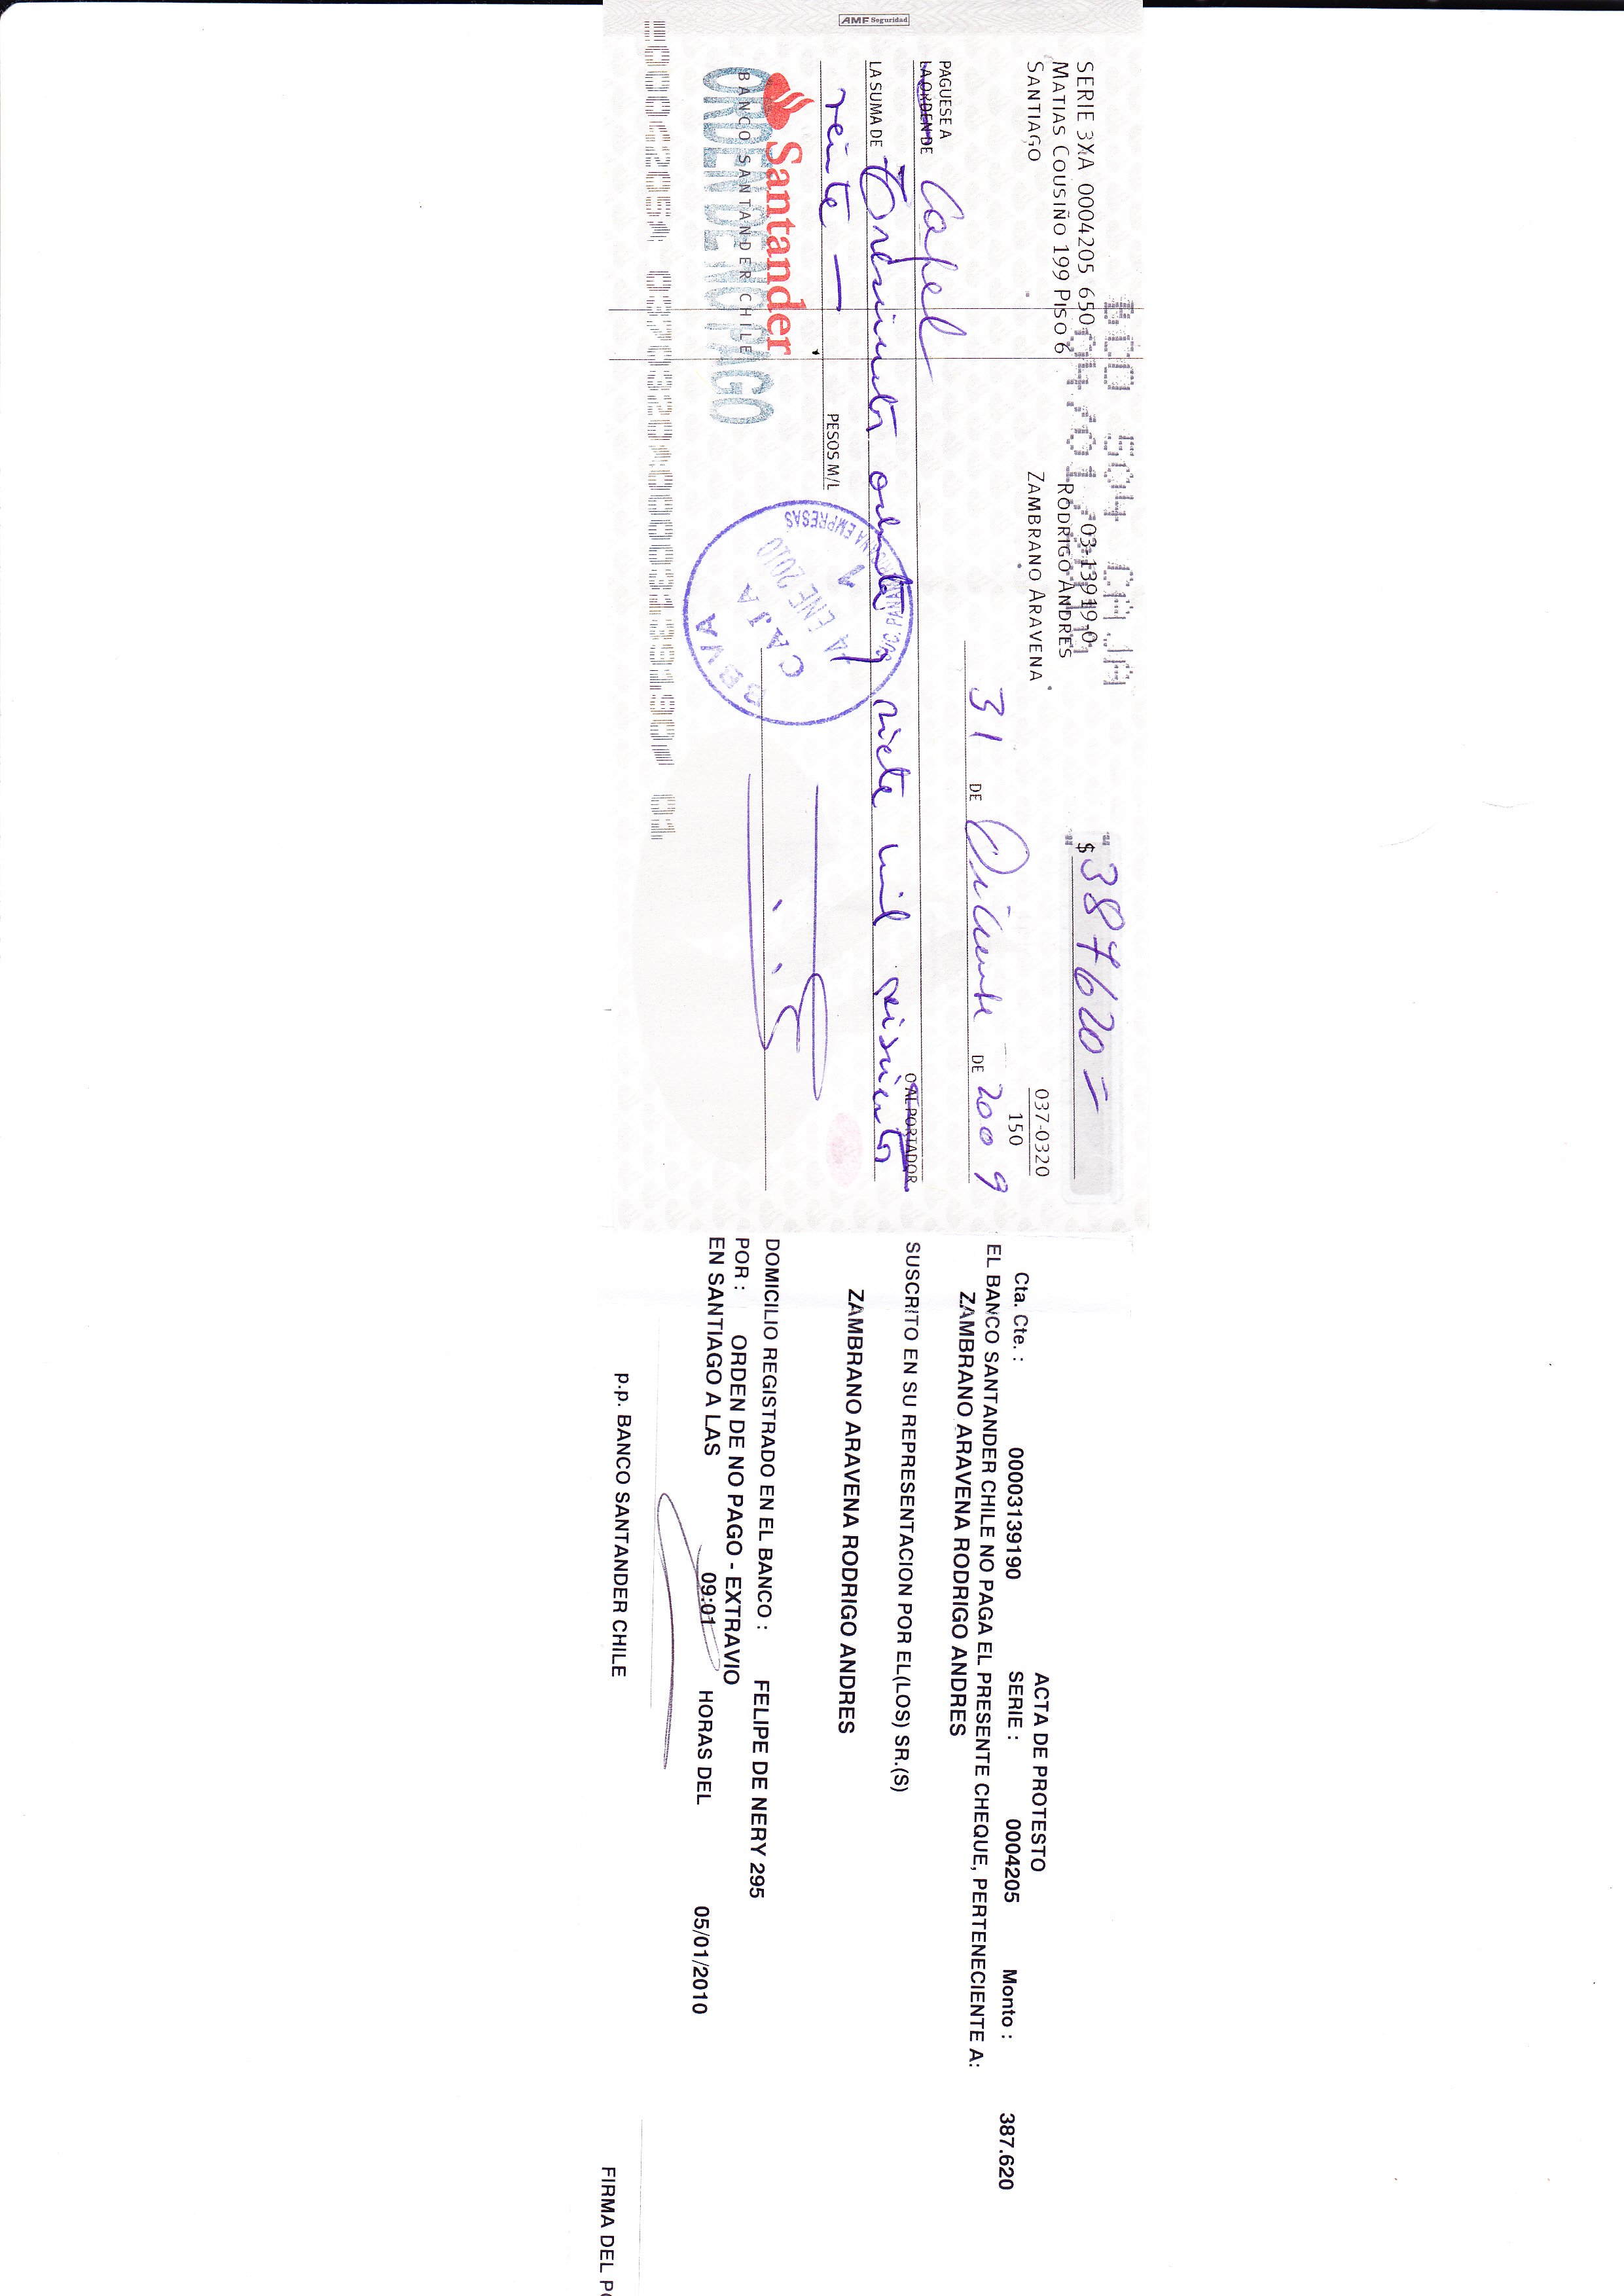 AMF Seguridad
SERIE 3XA 0004205 650
MATIAS COUSIÑO 199 PISO 6
SANTIAGO
03-13919-0
RODRIGO ANDRES
ZAMBRANO ARAVENA
$ 387620=
037-0320
150
31 DE Diciembre DE 2009
PAGUESE A
LA ORDEN DE Capel
O AL PORTADOR
LA SUMA DE Trescientos ochenta y siete mil seiscientos
veinte —
PESOS M/L
Santander
BANCO SANTANDER CHILE
ORDEN DE NO PAGO
BBVA
CAJA
EMPRESAS
ENE 2010
ACTA DE PROTESTO
Cta. Cte. : 00003139190 SERIE : 0004205 Monto : 387.620
EL BANCO SANTANDER CHILE NO PAGA EL PRESENTE CHEQUE, PERTENECIENTE A:
ZAMBRANO ARAVENA RODRIGO ANDRES
SUSCRITO EN SU REPRESENTACION POR EL(LOS) SR.(S)
ZAMBRANO ARAVENA RODRIGO ANDRES
DOMICILIO REGISTRADO EN EL BANCO : FELIPE DE NERY 295
POR : ORDEN DE NO PAGO - EXTRAVIO
EN SANTIAGO A LAS 09:01 HORAS DEL 05/01/2010
p.p. BANCO SANTANDER CHILE
FIRMA DEL